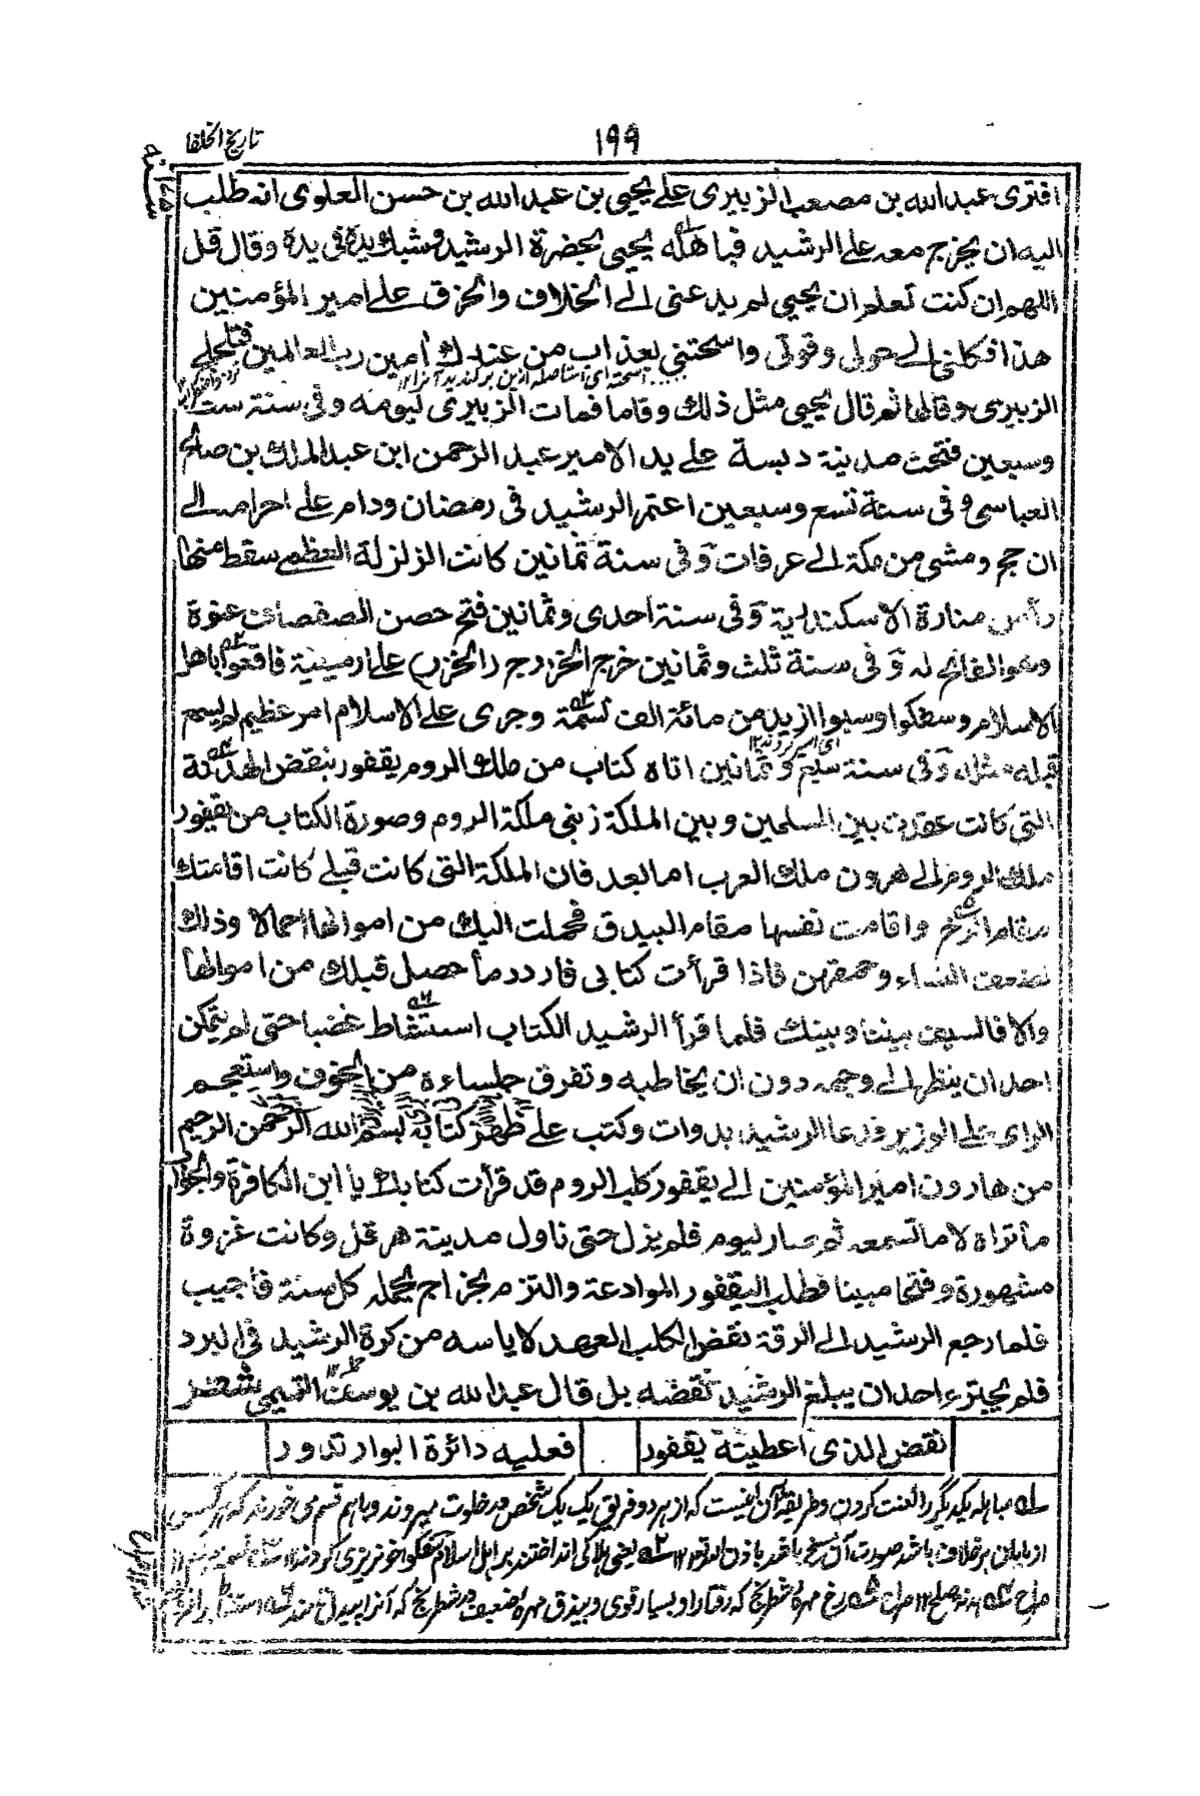 تاريخ الخلفا
١٩٩
افترى عبد الله بن مصعب الزبيرى على يحيى بن عبد الله بن حسن العلوى انه طلب
اليه ان يخرج معه على الرشيد فباهله يحيى بحضرة الرشيد وشبك يده فى يده وقال قل
اللهم ان كنت تعلم ان يحيى لم يدعنى الى الخلاف والخروق على امير المؤمنين
هذا فكلنى الى حولى وقوتى واسحتنى بعذاب من عندك آمين رب العالمين فتلجلج
الزبيرى وقالها ثم قال يحيى مثل ذلك وقاما فمات الزبيرى ليومه وفى سنة ست
وسبعين فتحت مدينة دبسة على يد الامير عبد الرحمن ابن عبد الملك بن صالح
العباسى وفى سنة تسع وسبعين اعتمر الرشيد فى رمضان ودام على احرامه الى
ان حج ومشى من مكة الى عرفات وفى سنة ثمانين كانت الزلزلة العظمى سقط منها
رأس منارة الاسكندرية وفى سنة احدى وثمانين فتح حصن الصفصاف عنوة
وهو الفاتح له وفى سنة ثلث وثمانين خرج الخزر على ارمينية فاوقعوا باهل
الاسلام وسفكوا وسبوا ازيد من مائة الف نسمة وجرى على الاسلام امر عظيم لم يسمع
قبله مثله وفى سنة سبع وثمانين اتاه كتاب من ملك الروم يقفور بنقض الهدنة
التى كانت عقدت بين المسلمين وبين الملكة زينى ملكة الروم وصورة الكتاب من يقفور
ملك الروم الى هرون ملك العرب اما بعد فان الملكة التى كانت قبلى كانت اقامتك
مقام الرخ واقامت نفسها مقام البيدق فحملت اليك من اموالها احمالا وذلك
لضعف النساء وحمقهن فاذا قرأت كتابى فاردد ما حصل قبلك من اموالها
والا فالسيف بيننا وبينك فلما قرأ الرشيد الكتاب استشاط غضبا حتى لم يتمكن
احد ان ينظر الى وجهه دون ان يخاطبه وتفرق جلساءه من الخوف واستعجم
الراى على الوزير فدعا الرشيد بدوات وكتب على ظهر كتابه بسم الله الرحمن الرحيم
من هارون امير المؤمنين الى يقفور كلب الروم قد قرأت كتابك يا ابن الكافرة والجواب
ما تراه لا ما تسمعه ثم سار ليومه فلم يزل حتى ناول مدينة هرقل وكانت غزوة
مشهورة وفتحا مبينا فطلب اليقفور الموادعة والتزم بخراج يحمله كل سنة فاجيب
فلما رجع الرشيد الى الرقة نقض الكلب العهد لاياسه من كرة الرشيد فى البرد
فلم يجترء احد ان يبلغ الرشيد نقضه بل قال عبد الله بن يوسف التميمى شعر
نقض الذى اعطيته يقفور فعليه دائرة البوار تدور
له مباهله يكديگر را لعنت كردن وطريقه آن اينست كه از هر دو فريق يك يك شخص در خلوت ميروند وباهم قسم مى خورند كه هر كس